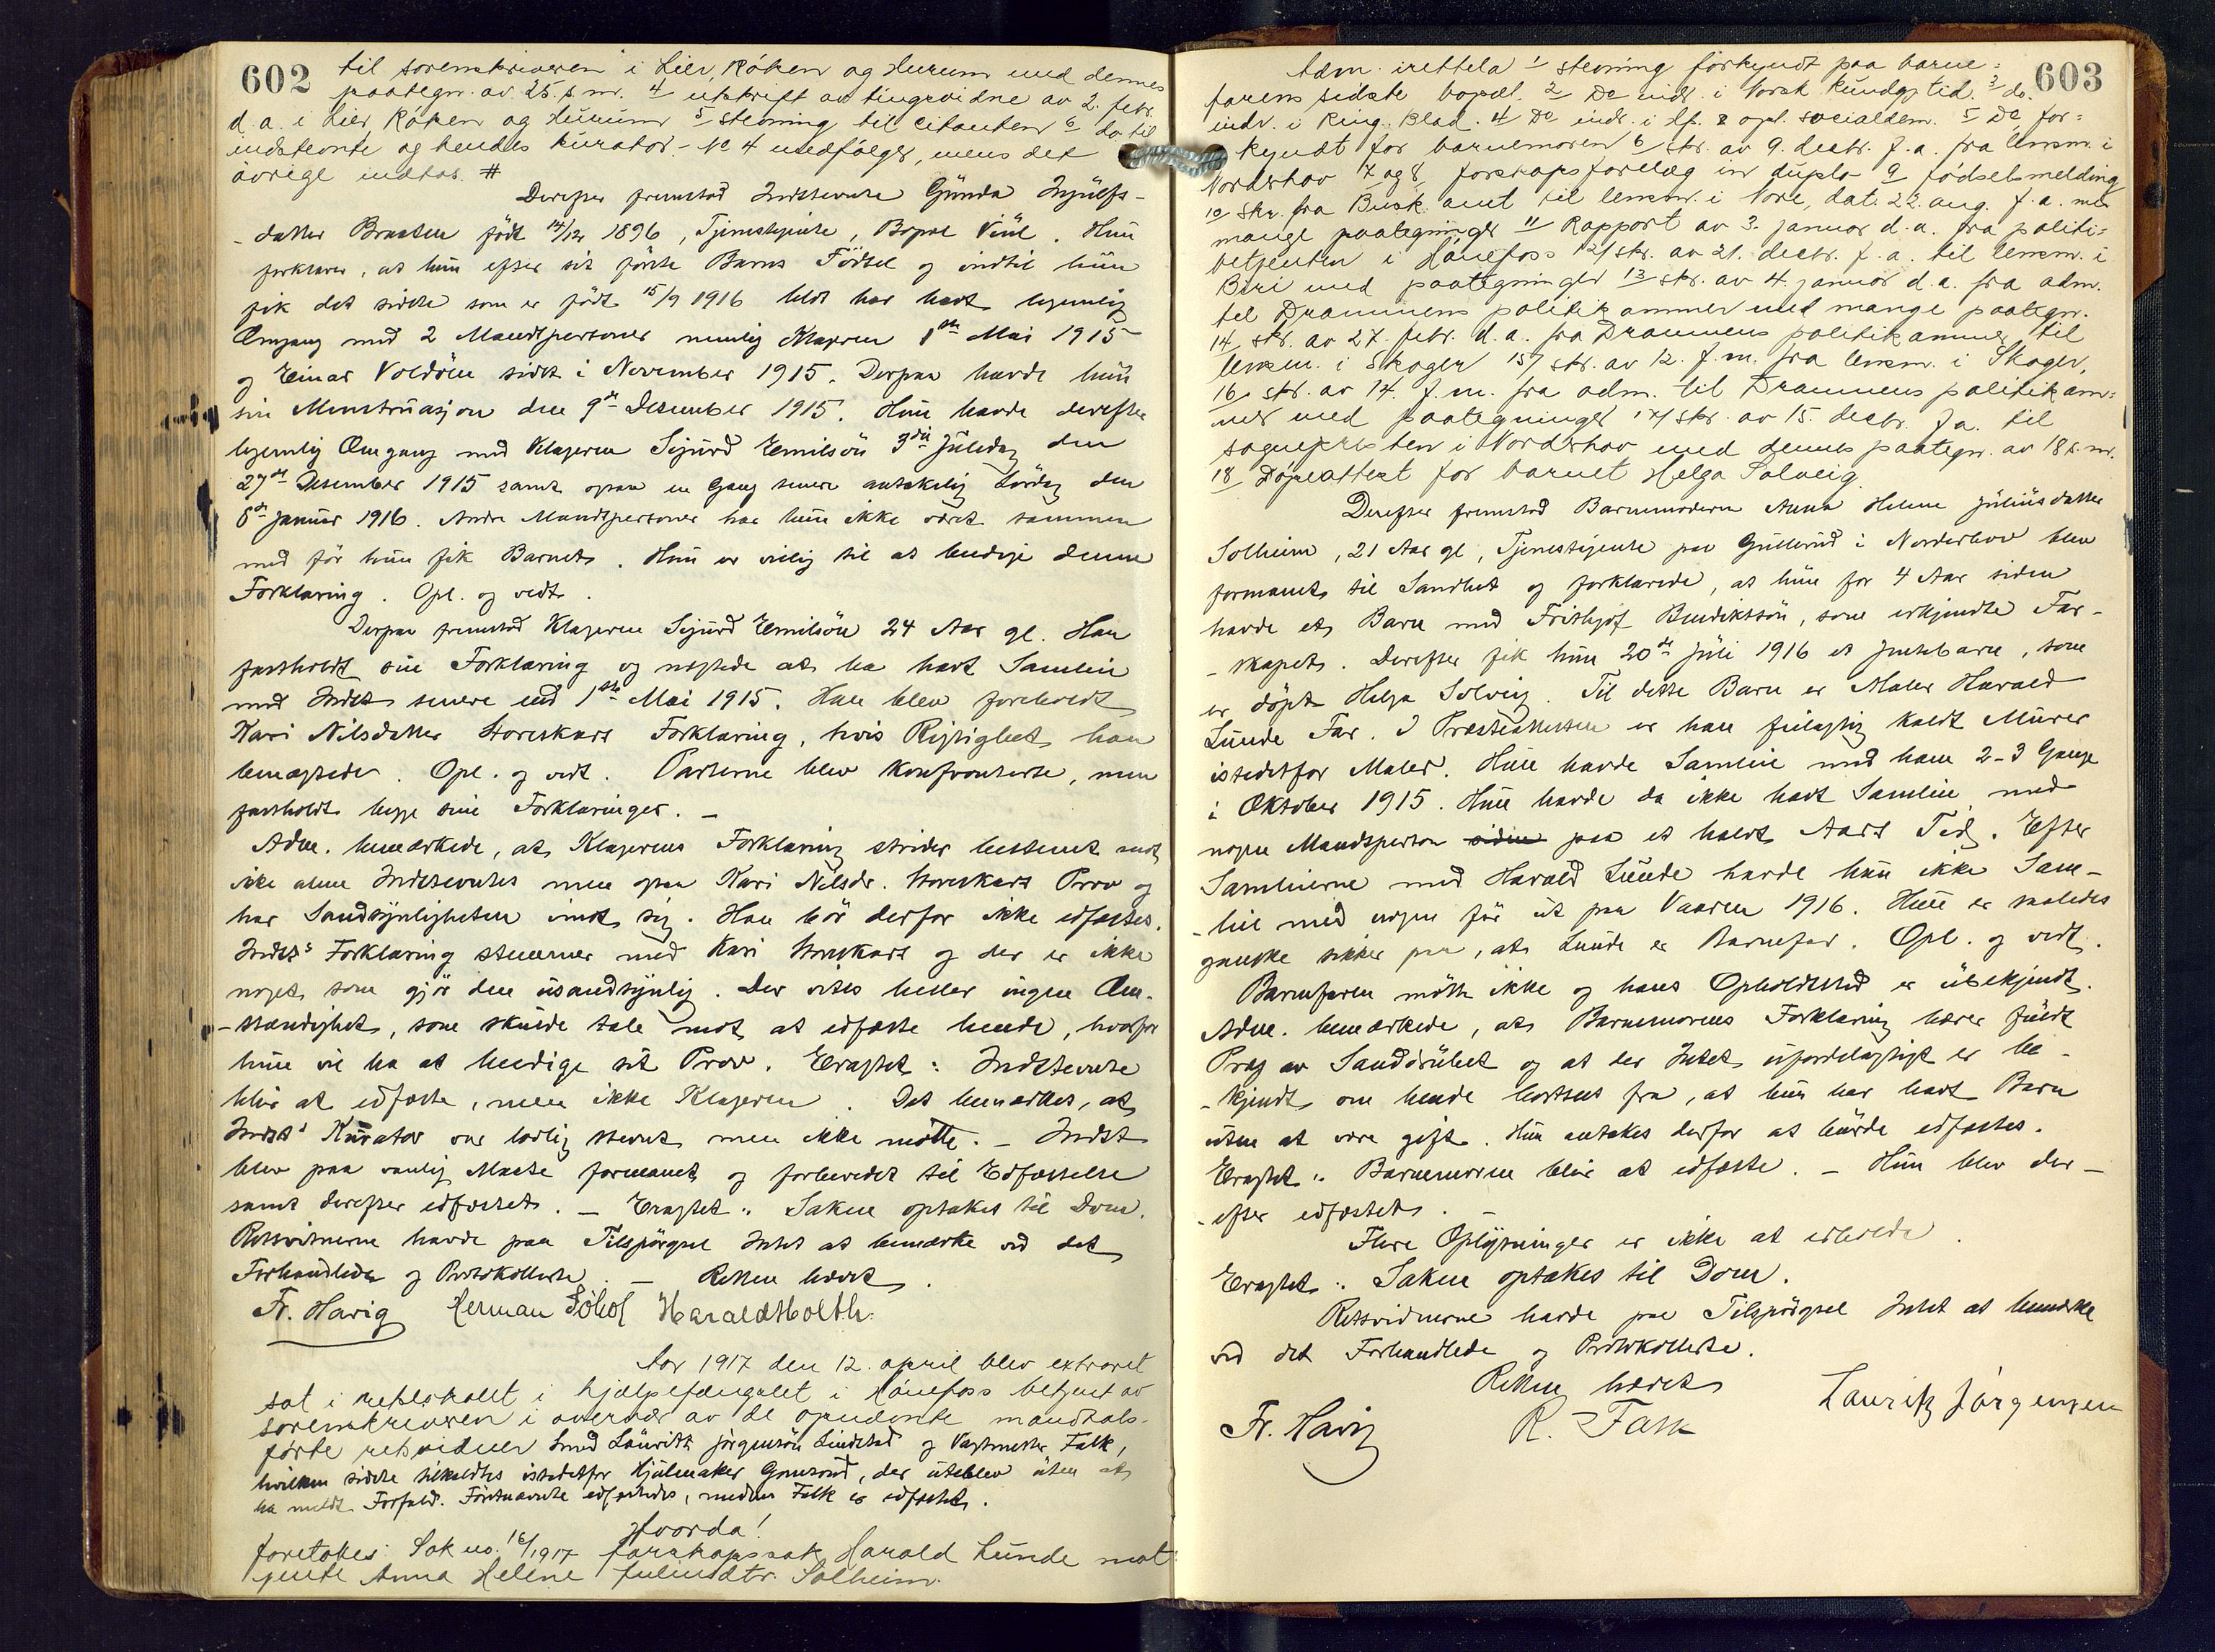 602
til sorenskriveren i Lier, Röken og Hurum med dennes
paategn. av 25. s.m. 4 utskrift av tingsvidne av 2. febr.
d.a. i Lier, Röken og Hurum 5 stevning til citanten 6 do til
indstevnte og hendes kurator. - No 4 medfölger, mens det
övrige indtas. #
Derefter fremstod Indstevnte Gunda Ingulfs-
-datter Braaten födt 14/12 1896, Tjenestepike, Bopæl Viul. Hun
forklarer, at hun efter sit förste Barns Födsel og indtil hun
fik det sidste som er födt 15/9 1916 blot har havt legemlig
Omgang med 2 Mandspersoner nemlig Klageren 1ste Mai 1915
og Einar Voldöen sidst i November 1915. Derpaa havde hun
sin Menstruasjon den 9de Desember 1915. Hun havde derefter
legemlig Omgang med Klageren Sigurd Emilsön 3die Juledag den
27de Desember 1915 samt ogsaa en Gang senere antakelig Lördag den
8de Januar 1916. Andre Mandspersoner har hun ikke været sammen
med för hun fik Barnet. Hun er villig til at beedige denne
Forklaring. Opl. og vedt.
Derpaa fremstod Klageren Sigurd Emilsön 24 Aar gl. Han
fastholdt sin Forklaring og negtede at ha havt Samleie
med Indst. senere end 1ste Mai 1915. Han blev foreholdt
Kari Nilsdatter Storeskars Forklaring, hvis Rigtighet han
benegtede. Opl. og vedt. Parterne blev konfronterte, men
fastholdt begge sine Forklaringer. -
Adm. bemærkede, at Klagerens Forklaring strider bestemt mot
ikke alene Indstevntes men ogsaa Kari Nilsdr. Storeskars Prov og
har Sandsynligheten imot sig. Han bör derfor ikke edfæstes.
Indst's Forklaring stemmer med Kari Storeskars og der er ikke
noget som gjör den usandsynlig. Der vites heller ingen Om-
-stændighet, som skulde tale mot at edfæste hende, hvorfor
hun vil ha at beedige sit Prov. Eragtet: Indstevnte
blir at edfæste, men ikke Klageren. Det bemerkes, at
Indst's Kurator var lovlig stevnt men ikke mötte. - Indst
blev paa vanlig Maate formanet og forberedet til Edfæstelse
samt derefter edfæstet. - Eragtet: Saken optakes til Dom.
Retsvitnerne havde paa Tilspörgsel Intet at bemærke ved det
Forhandlede og Protokollerte. - Retten hævet.
Fr. Harig Herman Haraldt Holth.
Aar 1917 den 12. april blev extraret
sat i retslokalet i hjælpefængslet i Hönefoss betjent av
sorenskriveren i overvær av de opnævnte mandtals-
förte retsvidner Smed Lauritz Jörgensön Lindstad og Vagtmester Falk,
hvilken sidste tilkaldtes istedetfor Hjulmaker Gomsrud, der uteblev uten at
ha meldt Forfald. Förstnævnte edfæstedes, medens Falk er edfæstet.
Hvorda!
foretokes: Sak no. 16/1917 farskapssak Harald Lunde mot
pike Anna Helene Juliusdtr. Solheim.
603
Adm. irettela 1 stevning forkyndt paa barne=
farens sidste bopæl. 2 Do indr. i Norsk Kundgj.tid. 3 do.
indr. i Ring. Blad. 4 Do indr. i lf. & opl. socialdem. 5 Do for=
kyndt for barnemoren 6 skr. av 9. decbr. f.a. fra lensm. i
Norderhov 7 og 8 farskapsforelæg in duplo 9 födselsmelding
10 skr. fra Busk. amt til lensm. i Nore, dat. 22. aug. f.a. med
mange paategninger 11 Rapport av 3. januar d.a. fra politi=
betjenten i Hönefoss 12 skr. av 21. decbr. f.a. til lensm. i
Biri med paategninger 13 skr. av 4. januar d.a. fra adm.
til Drammens politikammer med mange paategn.
14 skr. av 27. febr. d.a. fra Drammens politikammer til
lensm. i Skoger 15 skr. av 12. f.m. fra lensm. i Skoger,
16 skr. av 14. f.m. fra adm. til Drammens politikam=
mer med paategninger 17 skr. av 15. decbr. f.a. til
sogneprésten i Norderhov med dennes paategn. av 18 s.m.
18 Dopeattest for barnet Helga Solveig.
Derefter fremstod Barnemoderen Anna Helene Juliusdatter
Solheim, 21 Aar gl, Tjenestepike paa Gullerud i Norderhov blev
formanet til Sandhet og forklarede, at hun for 4 Aar siden
havde et Barn med Frithjof Bendiktsön, som erkjendte Far-
-skapet. Derefter fik hun 20de Juli 1916 et Pikebarn, som
er döpt Helga Solveig. Til dette Barn er Maler Harald
Lunde Far. I Presteattesten er han feilagtig kaldt Murer
istedetfor Maler. Hun havde Samleie med ham 2-3 Gange
i Oktober 1915. Hun havde da ikke havt Samleie med
nogen Mandsperson siden paa et halvt Aars Tid. Efter
Samleierne med Harald Lunde havde hun ikke Sam-
-leie med nogen för ut paa Vaaren 1916. Hun er saaledes
ganske sikker paa, at Lunde er Barnefar. Opl. og vedt.
Barnefaren mötte ikke og hans Opholdssted er ubekjendt.
Adm. bemærkede, at Barnemorens Forklaring bærer fuldt
Præg av Sanddruhet og at der Intet ufordelagtigt er be-
-kjendt om hende bortset fra, at hun har havt Barn
uten at være gift. Hun antakes derfor at burde edfæstes.
Eragtet: Barnemoren blir at edfæste. - Hun blev der-
-efter edfæstet.
Flere Oplysninger er ikke at erholde.
Eragtet: Saken optakes til Dom.
Retsvidnerne havde paa Tilspörgsel Intet at bemerke
ved det Forhandlede og Protokollerte.
Retten hævet
Fr. Harig R. Falk Lauritz Jörgensen